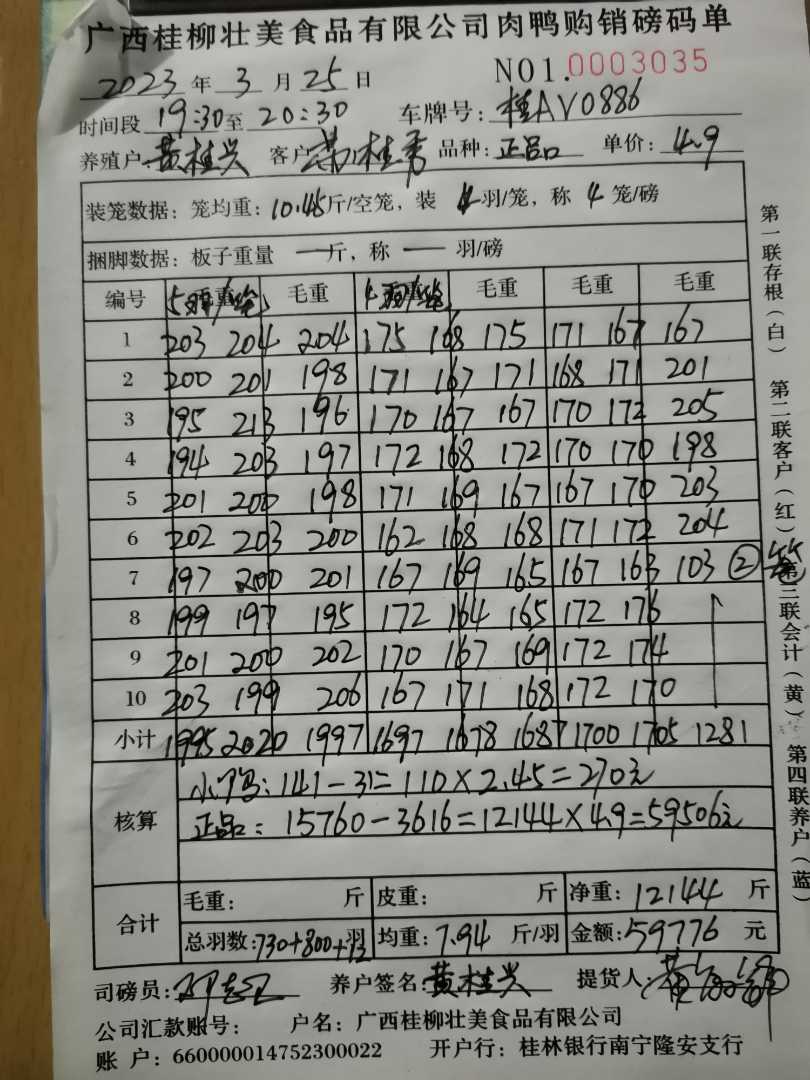 广西桂柳壮美食品有限公司肉鸭购销磅码单
2023 年 3 月 25 日 NO1.0003035
时间段 19:30 至 20:30 车牌号: 桂AV0886
养殖户: 黄桂兴 客户 桂秀 品种: 正品 单价: 4.9
装笼数据: 笼均重: 10.45 斤/空笼, 装 4 羽/笼, 称 4 笼/磅
捆脚数据: 板子重量 — 斤, 称 — 羽/磅
编号 5羽/笼 毛重 4羽/笼 毛重 毛重 毛重
1 203 204 204 175 168 175 171 167 167
2 200 201 198 171 167 171 168 171 201
3 195 213 196 170 167 167 170 172 205
4 194 203 197 172 168 172 170 170 198
5 201 200 198 171 169 167 167 170 203
6 202 203 200 162 168 168 171 172 204
7 197 200 201 167 169 165 167 163 103 ②笼
8 199 197 195 172 164 165 172 176
9 201 200 202 170 167 169 172 174
10 203 199 206 167 171 168 172 170
小计 1995 2020 1997 1697 1678 1687 1700 1705 1281
核算
小鸭: 141-31=110×2.45=270元
正品: 15760-3616=12144×4.9=59506元
合计
毛重: 斤 皮重: 斤 净重: 12144 斤
总羽数: 730+800+ 羽 均重: 7.94 斤/羽 金额: 59776 元
司磅员: 养户签名: 黄桂兴 提货人:
公司汇款账号: 户名: 广西桂柳壮美食品有限公司
账 户: 660000014752300022 开户行: 桂林银行南宁隆安支行
第一联存根(白) 第二联客户(红) 第三联会计(黄) 第四联养户(蓝)